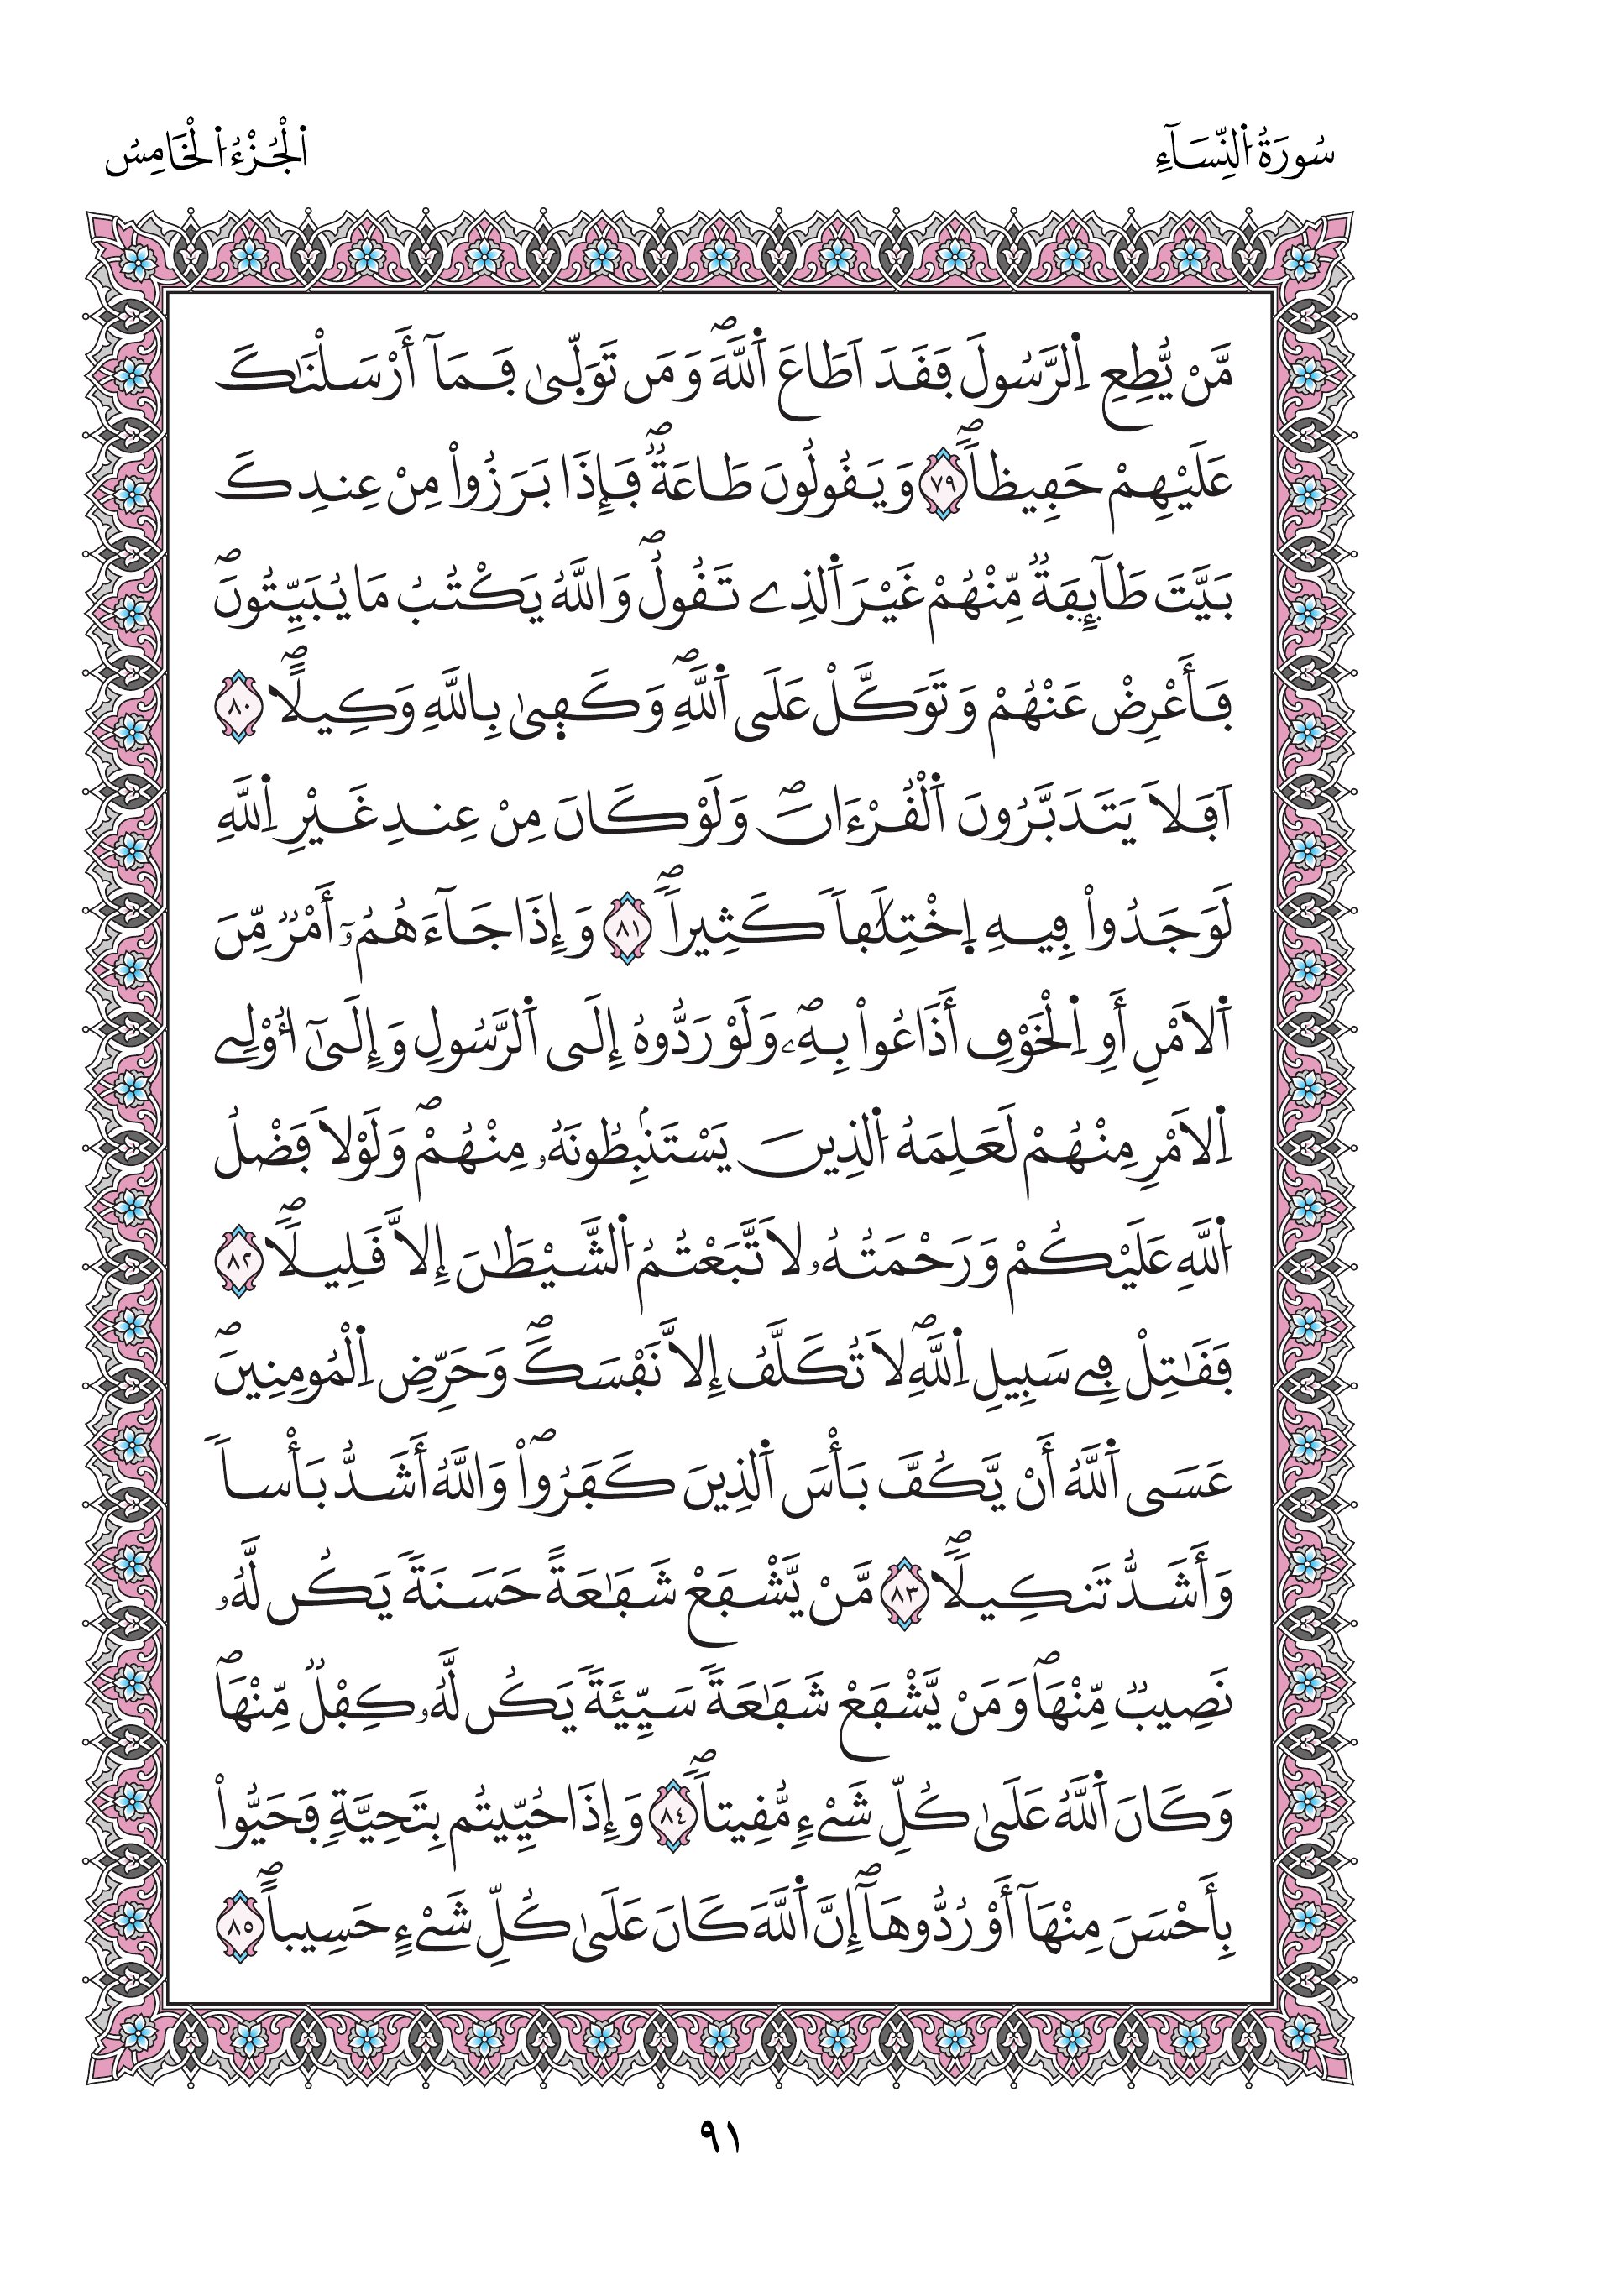 سُورَةُ اُ۬لنِّسَآءِ
اُ۬لْجُزْءُ اُ۬لْخَامِسُ
مَّنْ يُّطِعِ اِ۬لرَّسُولَ فَقَدَ اَطَاعَ اَ۬للَّهَۖ وَمَن تَوَلّ۪ىٰ فَمَآ أَرْسَلْنَٰكَ
عَلَيْهِمْ حَفِيظاٗۖ ٧٩ وَيَقُولُونَ طَاعَةٞۖ فَإِذَا بَرَزُواْ مِنْ عِندِكَ
بَيَّتَ طَآئِفَةٞ مِّنْهُمْ غَيْرَ اَ۬لذِے تَقُولُۖ وَاللَّهُ يَكْتُبُ مَا يُبَيِّتُونَۖ
فَأَعْرِضْ عَنْهُمْ وَتَوَكَّلْ عَلَى اَ۬للَّهِۖ وَكَف۪ىٰ بِاللَّهِ وَكِيلاًۖ ٨٠
اَفَلَا يَتَدَبَّرُونَ اَ۬لْقُرْءَانَۖ وَلَوْ كَانَ مِنْ عِندِ غَيْرِ اِ۬للَّهِ
لَوَجَدُواْ فِيهِ اِ۪خْتِلَٰفاٗ كَثِيراٗۖ ٨١ وَإِذَا جَآءَهُمُۥٓ أَمْرٞ مِّنَ
اَ۬لَامْنِ أَوِ اِ۬لْخَوْفِ أَذَاعُواْ بِهِۦۖ وَلَوْ رَدُّوهُ إِلَى اَ۬لرَّسُولِ وَإِلَىٰٓ أُوْلِے
اِ۬لَامْرِ مِنْهُمْ لَعَلِمَهُ اُ۬لذِينَ يَسْتَنۢبِطُونَهُۥ مِنْهُمْۖ وَلَوْلَا فَضْلُ
اُ۬للَّهِ عَلَيْكُمْ وَرَحْمَتُهُۥ لَاتَّبَعْتُمُ اُ۬لشَّيْطَٰنَ إِلَّا قَلِيلاٗۖ ٨٢
فَقَٰتِلْ فِے سَبِيلِ اِ۬للَّهِۖ لَا تُكَلَّفُ إِلَّا نَفْسَكَۖ وَحَرِّضِ اِ۬لْمُومِنِينَۖ
عَسَى اَ۬للَّهُ أَنْ يَّكُفَّ بَأْسَ اَ۬لذِينَ كَفَرُواْۖ وَاللَّهُ أَشَدُّ بَأْساٗ
وَأَشَدُّ تَنكِيلاٗۖ ٨٣ مَّنْ يَّشْفَعْ شَفَٰعَةً حَسَنَةٗ يَكُن لَّهُۥ
نَصِيبٞ مِّنْهَاۖ وَمَنْ يَّشْفَعْ شَفَٰعَةٗ سَيِّئَةٗ يَكُن لَّهُۥ كِفْلٞ مِّنْهَاۖ
وَكَانَ اَ۬للَّهُ عَلَىٰ كُلِّ شَےْءٖ مُّقِيتاٗۖ ٨٤ وَإِذَا حُيِّيتُم بِتَحِيَّةٖ فَحَيُّواْ
بِأَحْسَنَ مِنْهَآ أَوْ رُدُّوهَآۖ إِنَّ اَ۬للَّهَ كَانَ عَلَىٰ كُلِّ شَےْءٍ حَسِيباًۖ ٨٥
٩١